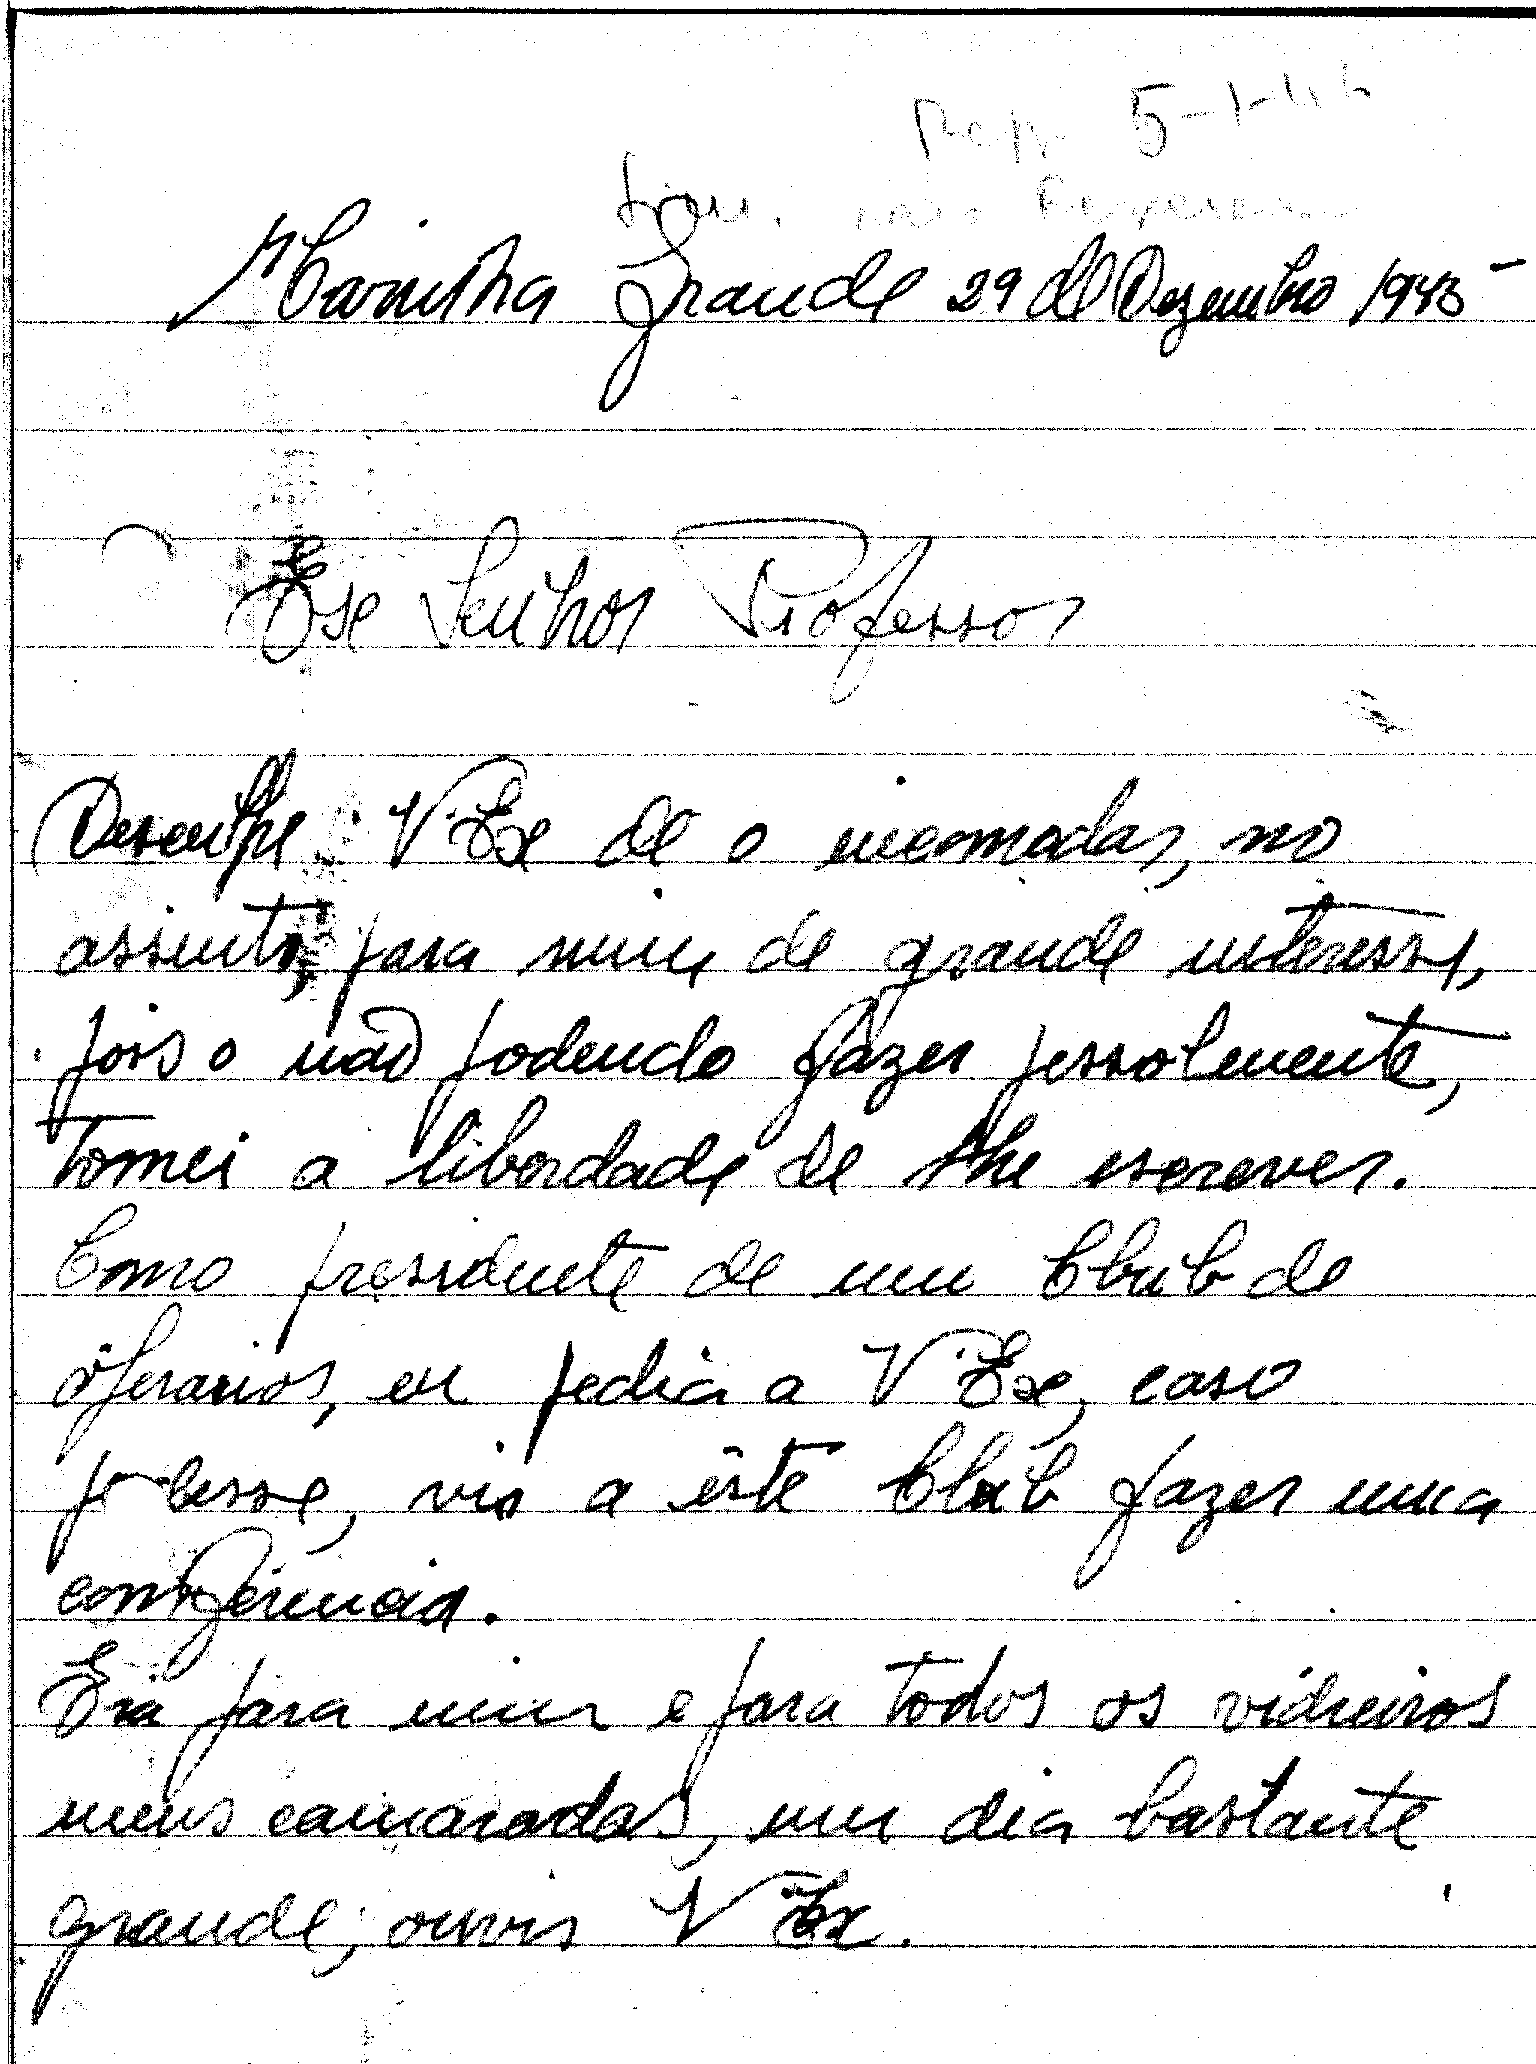 Resp. 5-1-46
Marinha Grande 29 de Dezembro 1945
Exe Senhor Professor
Desculpe V. Ex de o incomodar, no
assunto, para mim de grande interesse,
pois o não podendo fazer pessolmente,
tomei a liberdade de lhe escrever.
Como presidente de um Club de
óperarios, eu pedia a V. Exe, caso
podesse, vir a êste Club fazer uma
conferencia.
Era para mim e para todos os vidreiros
meus camaradas, um dia bastante
grande, ouvir V. Ex.